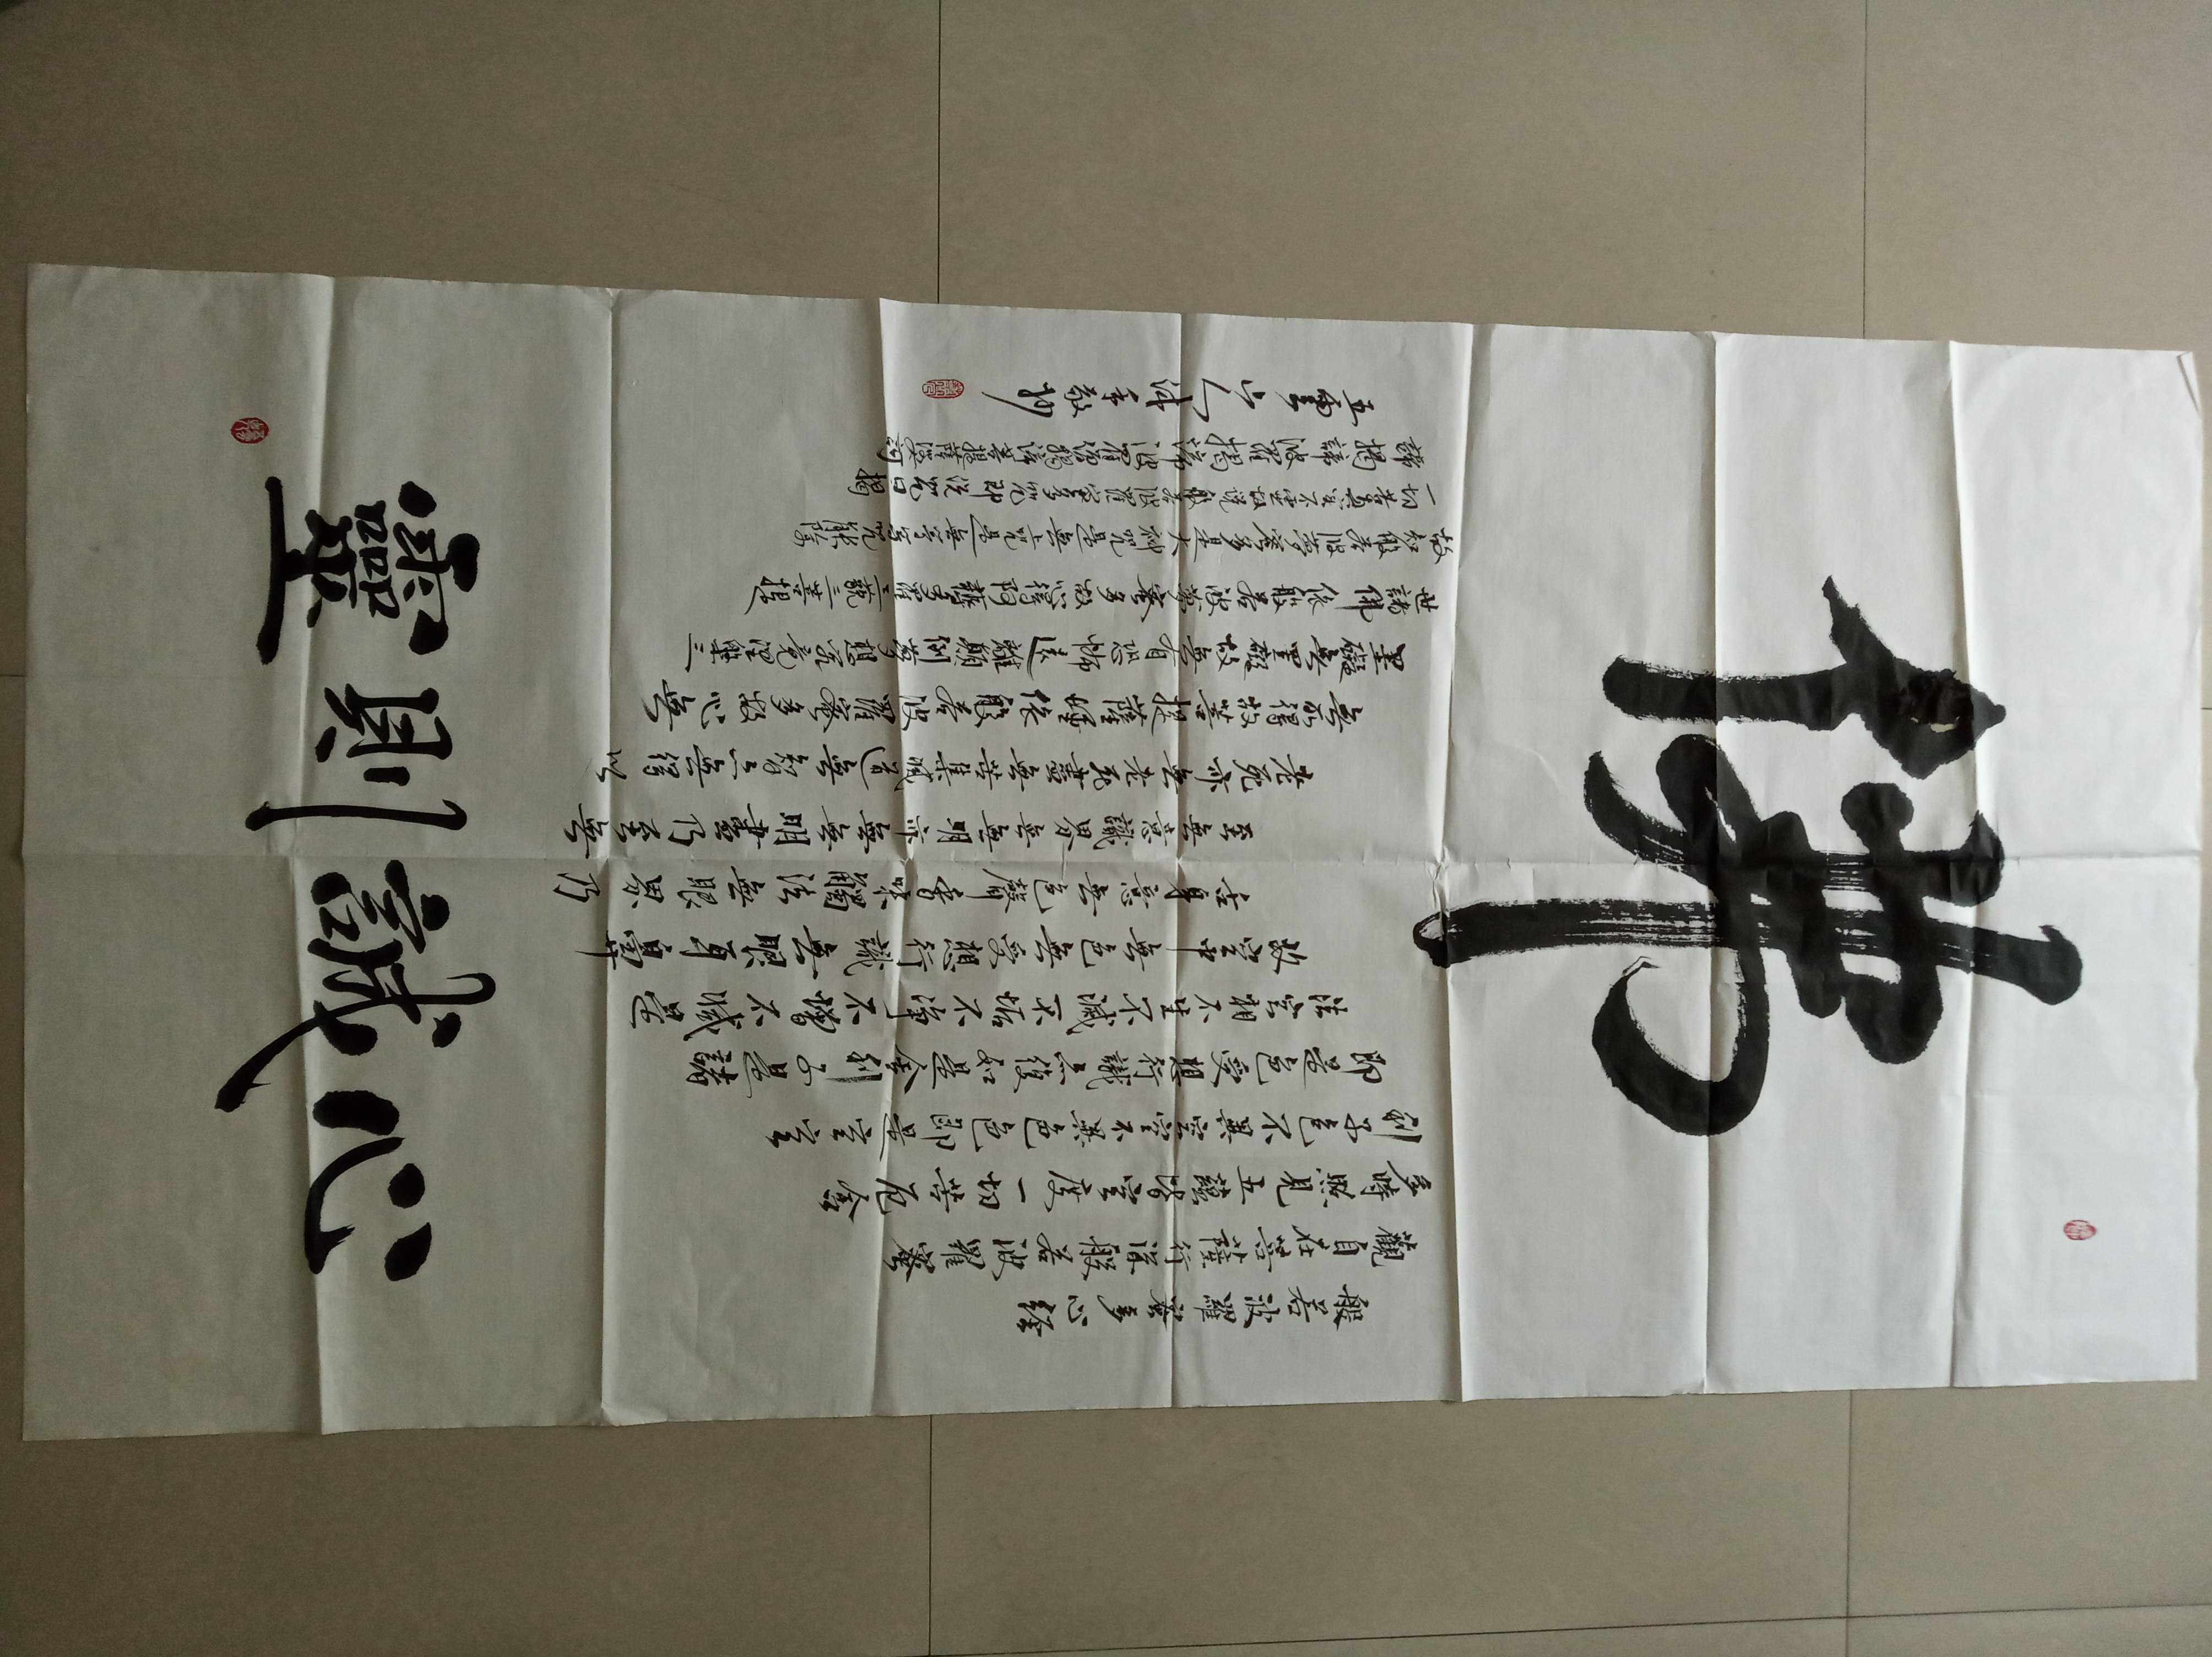 佛
般若波羅蜜多心經
觀自在菩薩行深般若波羅蜜
多時照見五蘊皆空度一切苦厄舍
利子色不異空空不異色色即是空空
即是色受想行識亦復如是舍利子是諸
法空相不生不滅不垢不淨不增不減是
故空中無色無受想行識無眼耳鼻
舌身意無色聲香味觸法無眼界乃
至無意識界無無明亦無無明盡乃至無
老死亦無老死盡無苦集滅道無智亦無得以
無所得故菩提薩埵依般若波羅蜜多故心無
罣礙無罣礙故無有恐怖遠離顛倒夢想究竟涅槃三
世諸佛依般若波羅蜜多故得阿耨多羅三藐三菩提
故知般若波羅蜜多是大神咒是無上咒是無等等咒能除
一切苦真實不虛故說般若波羅蜜多咒即說咒曰揭
諦揭諦波羅揭諦波羅僧揭諦菩提薩婆訶
沐手敬抄
心誠則靈